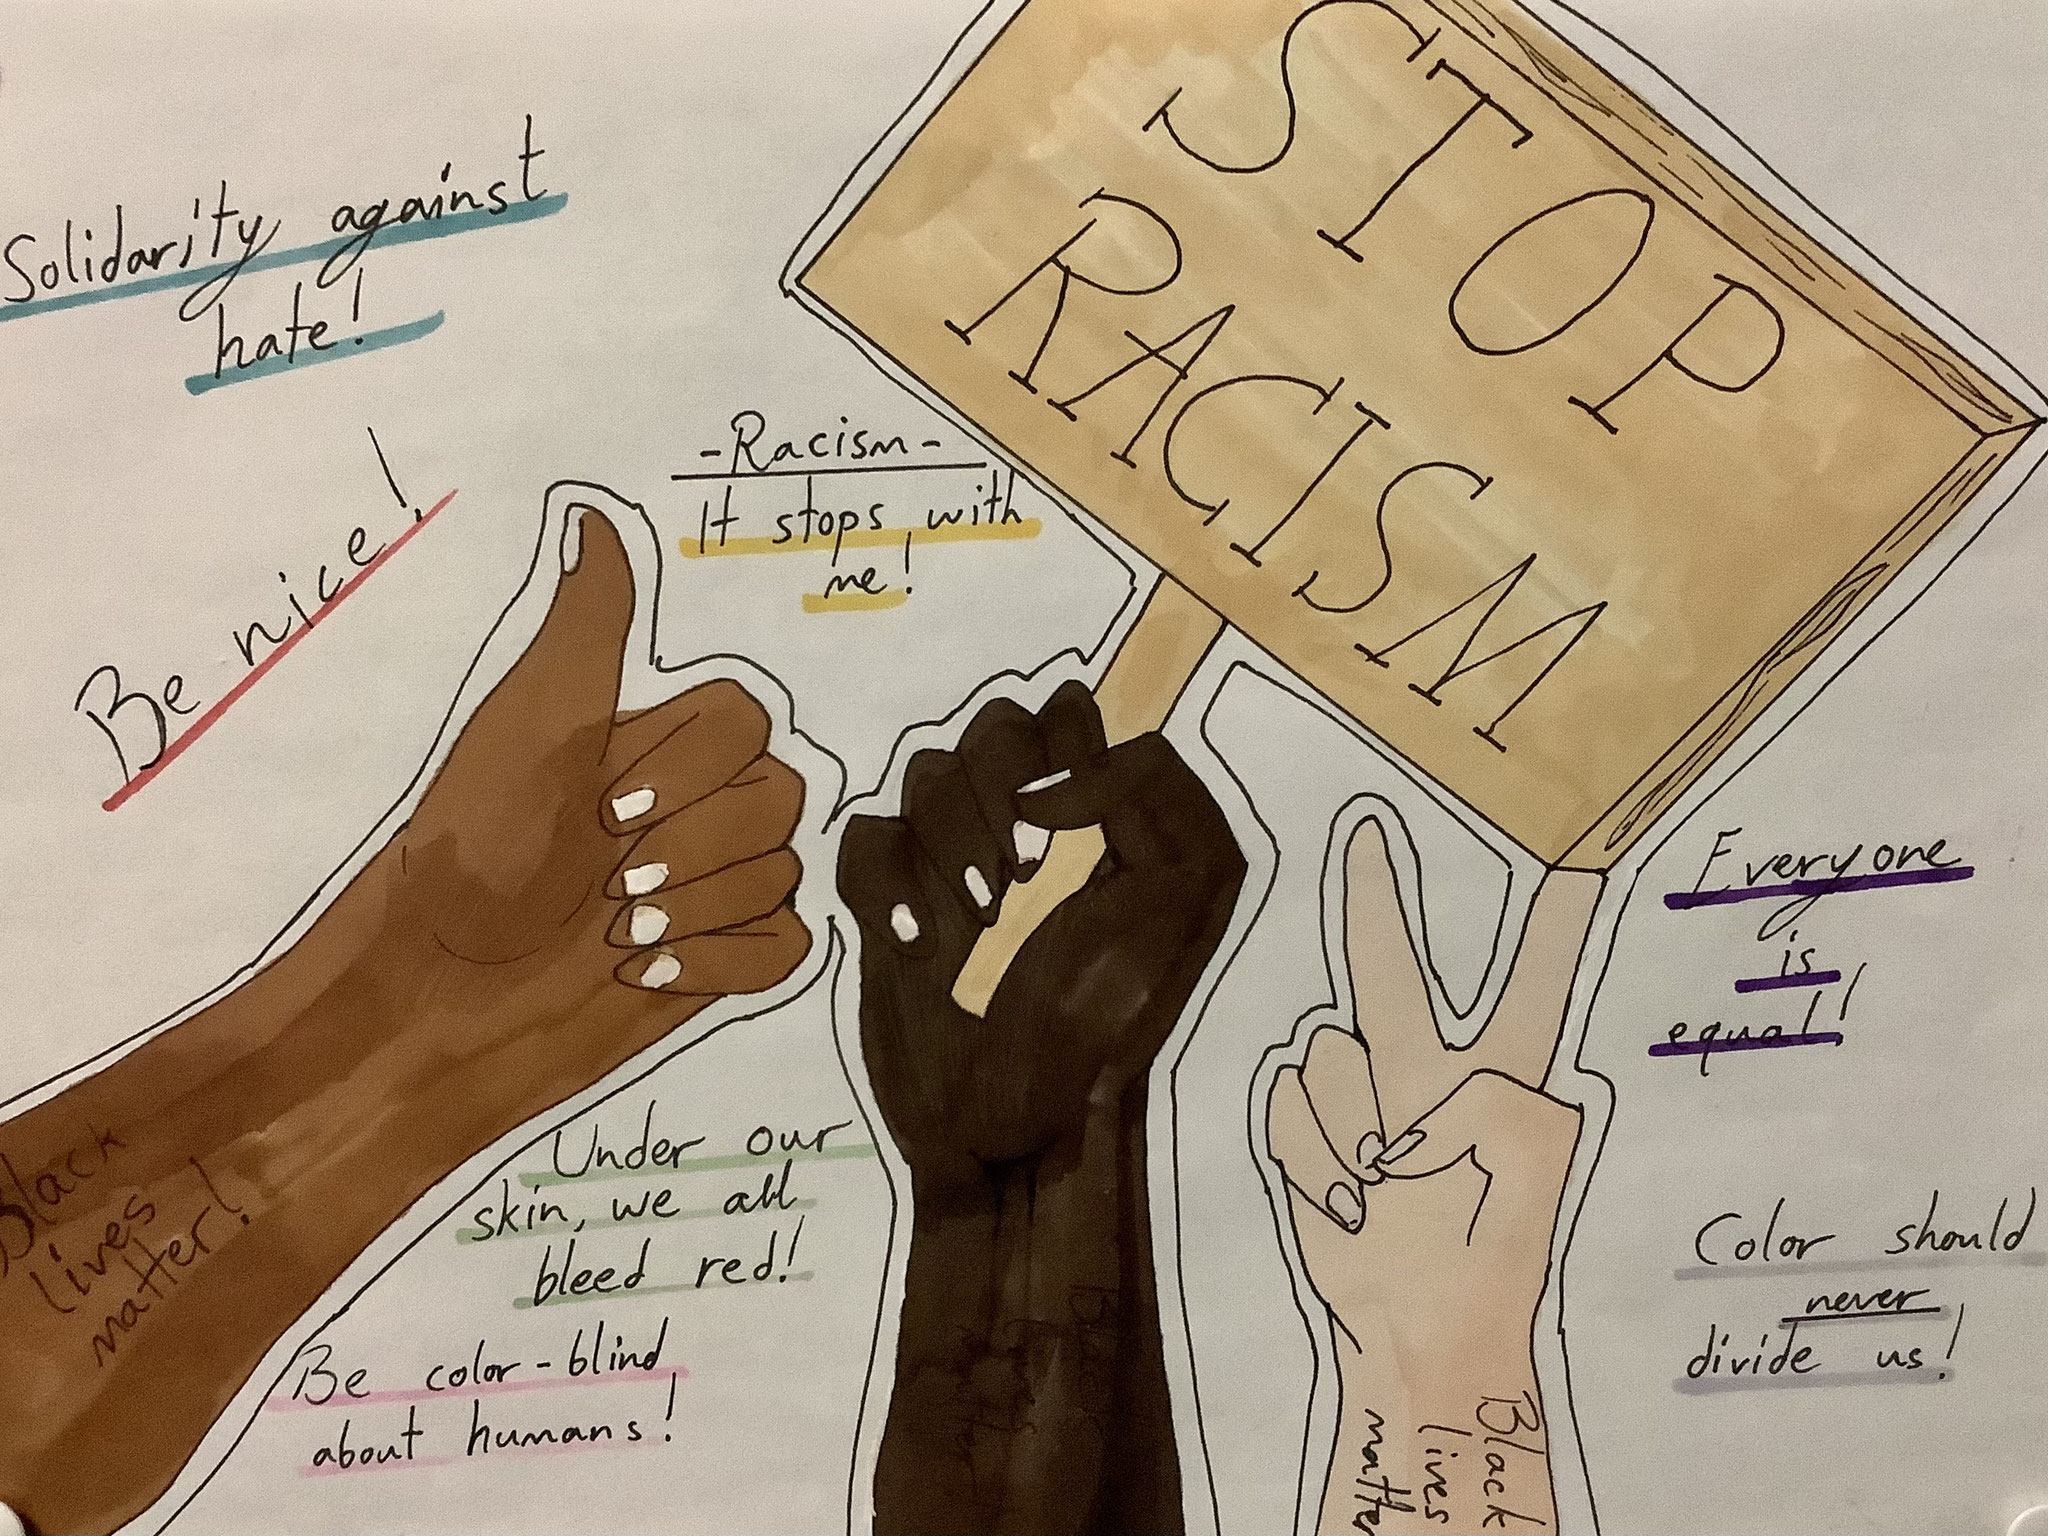 STOP
RACISM
Solidarity against
hate!
- Racism -
It stops with
me!
Be nice!
Everyone
is
equal!
Under our
skin, we all
bleed red!
Color should
never
divide us!
Be color-blind
about humans!
Black
lives
matter!
Black
lives
matter
Black
lives
matter